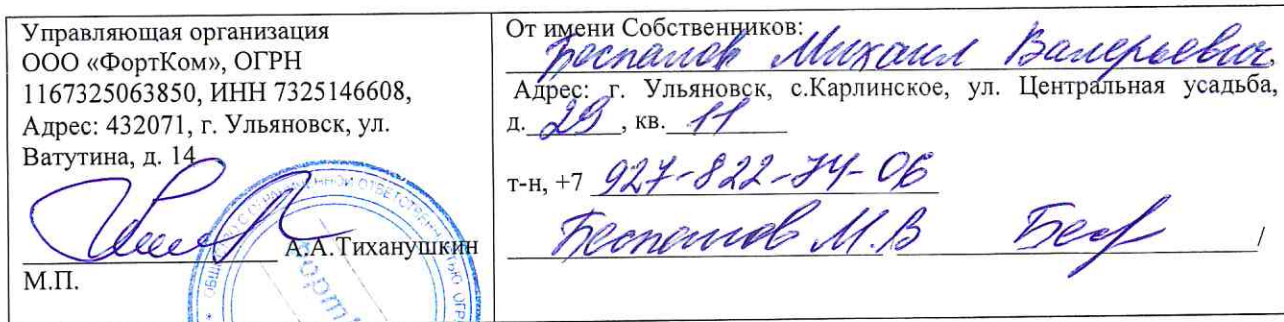 Управляющая организация
ООО «ФортКом», ОГРН
1167325063850, ИНН 7325146608,
Адрес: 432071, г. Ульяновск, ул.
Ватутина, д. 14
А.А.Тиханушкин
М.П.
От имени Собственников:
Беспалов Михаил Валерьевич,
Адрес: г. Ульяновск, с.Карлинское, ул. Центральная усадьба,
д. 29, кв. 11
т-н, +7 927-822-74-06
Беспалов М.В /